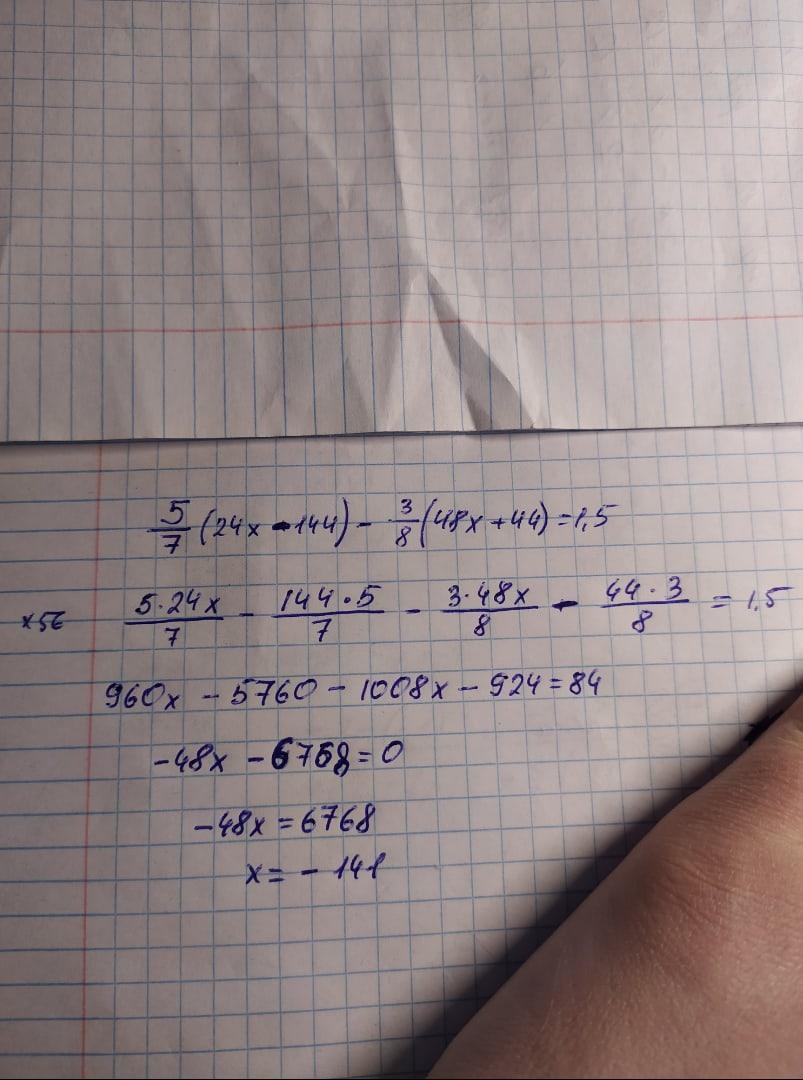 5/7 (24x - 144) - 3/8 (48x + 44) = 1,5
x56 5·24x/7 - 144·5/7 - 3·48x/8 - 44·3/8 = 1,5
960x - 5760 - 1008x - 924 = 84
-48x - 6768 = 0
-48x = 6768
x = - 141